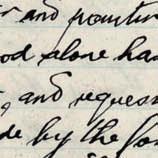 and
od alone ha
, and reques
de by the